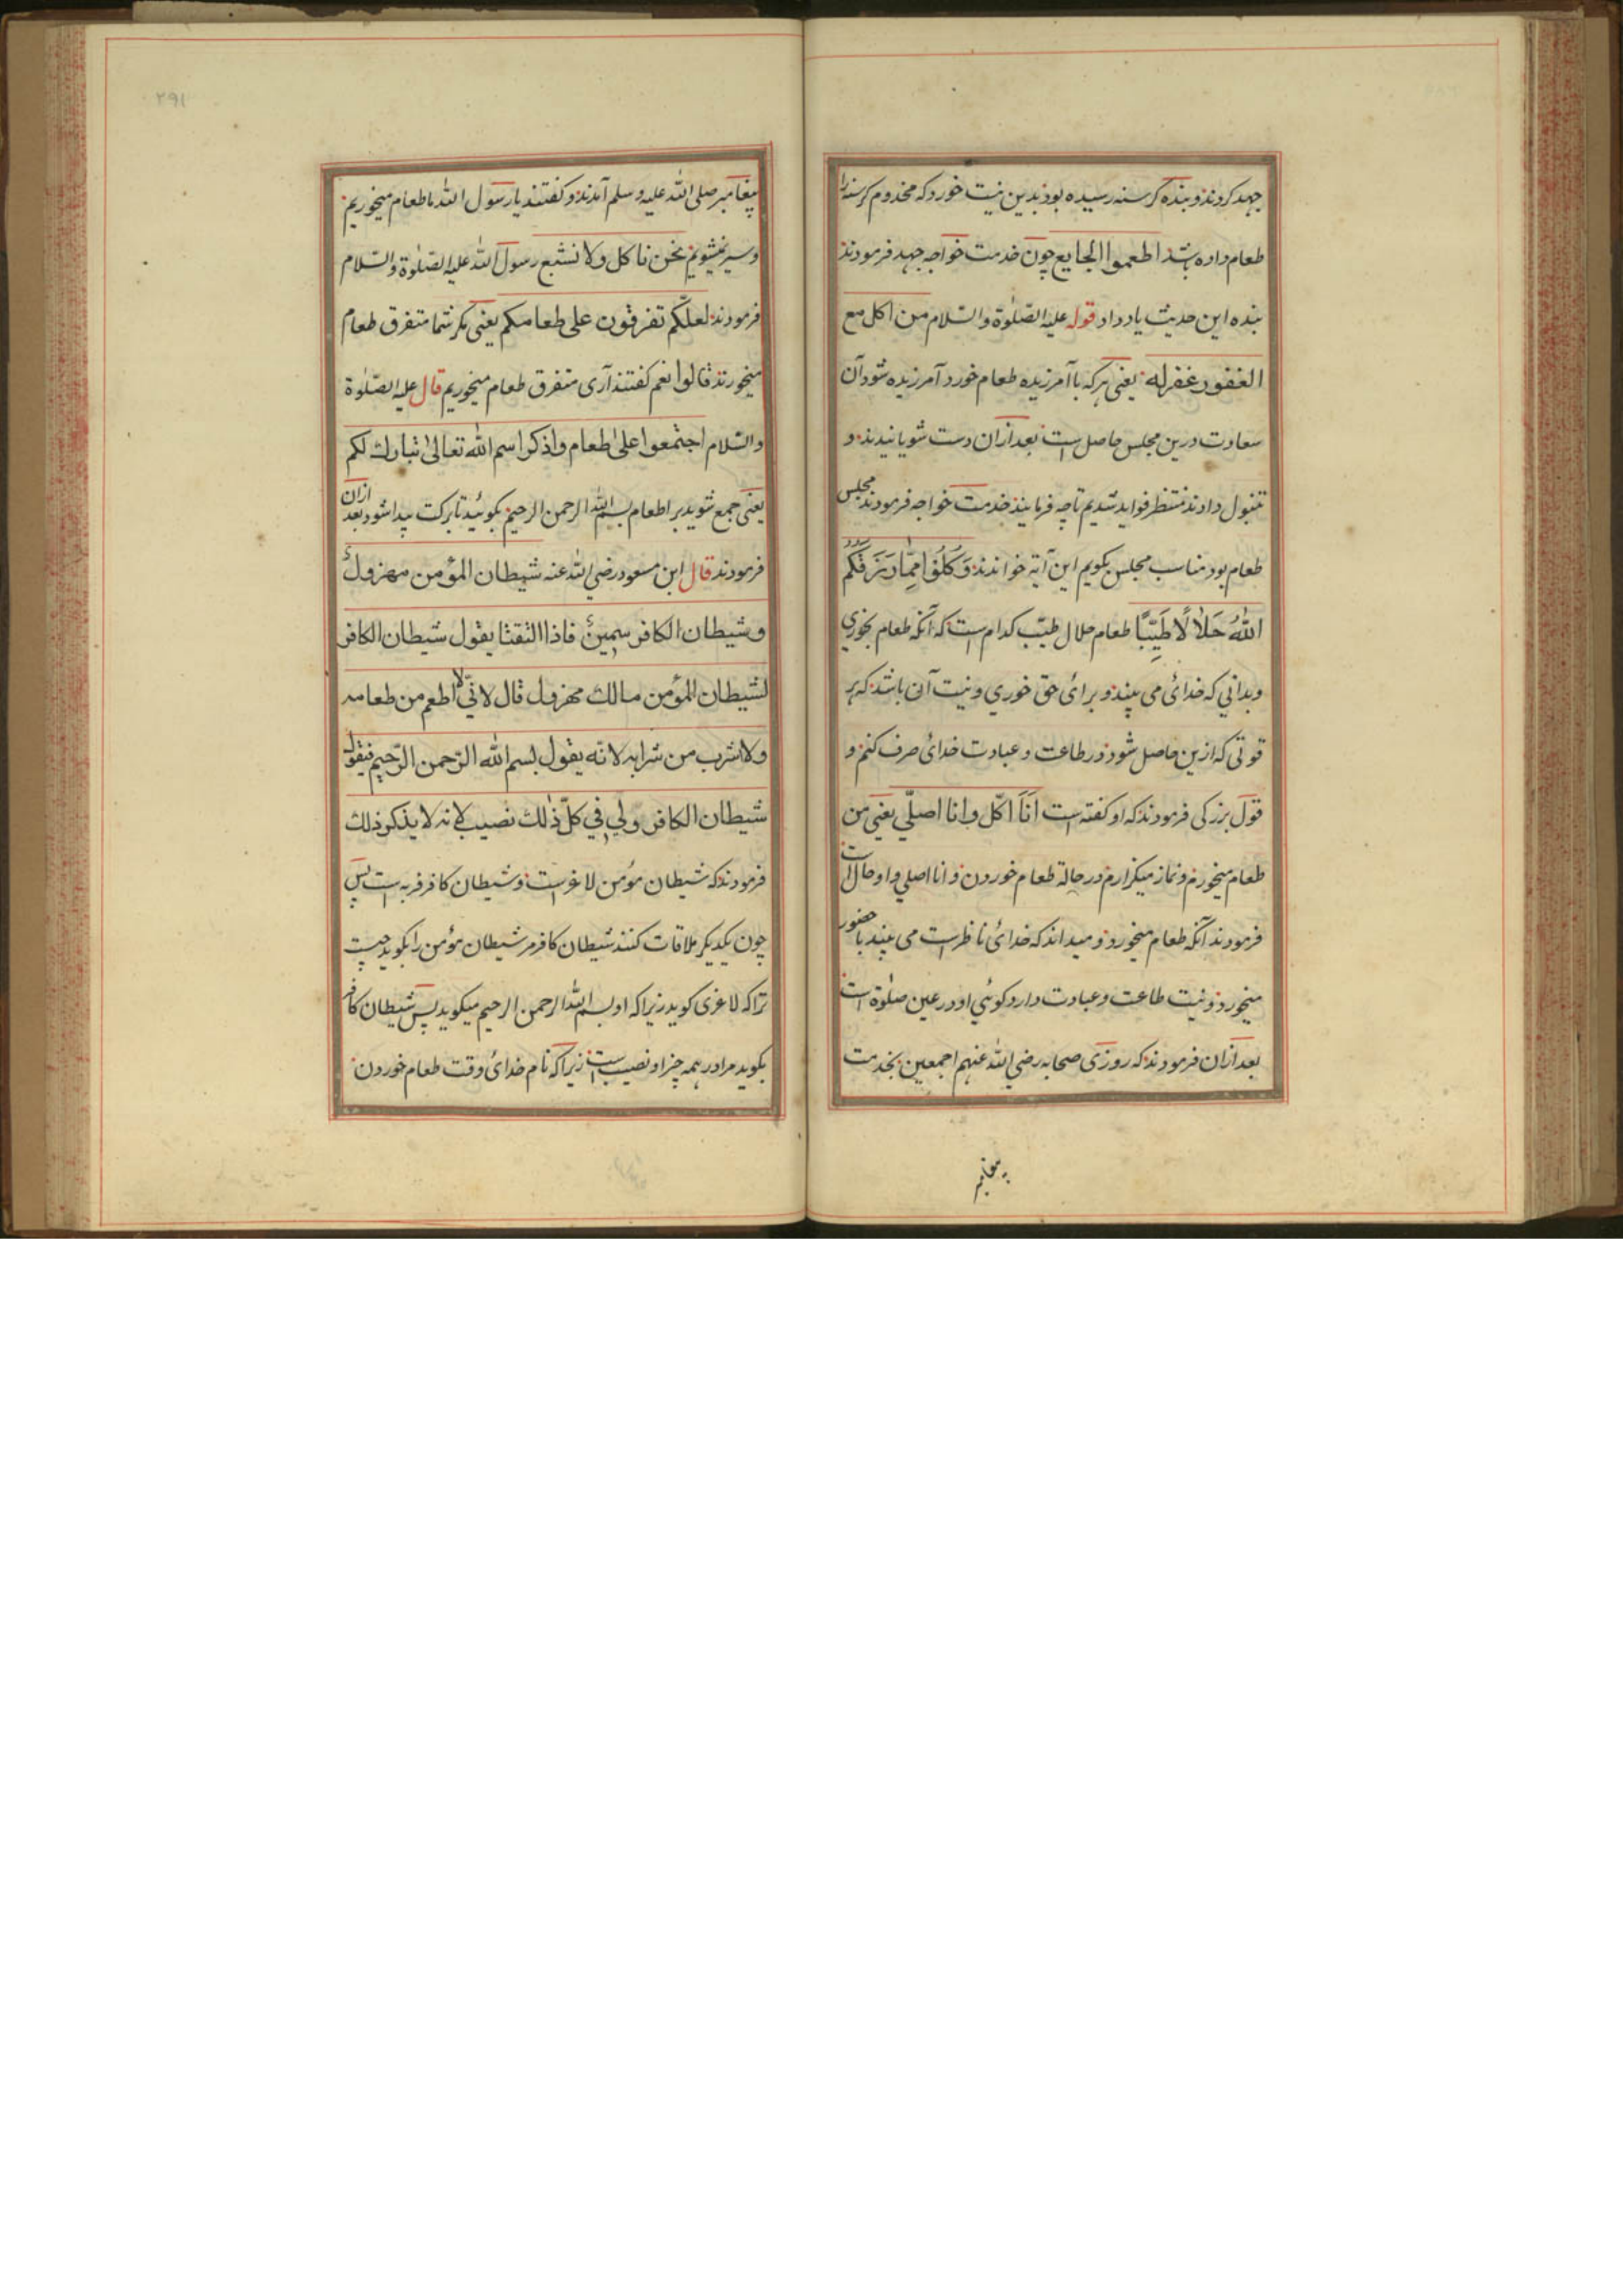 جهد کردند و بنده گرسنه رسیده بود بدین نیت خورد که مخدوم گرسنه را
طعام داده باشد اطعموا الجایع چون خدمت خواجه جهد فرمودند
بنده این حدیث یاد داد قوله علیه الصّلوة والسّلام من اکل مع
المغفور غفر له یعنی هر که با آمرزیده طعام خورد آمرزیده شود آن
سعادت درین مجلس حاصل است بعد ازان دست شویانیدند و
تنبول دادند منتظر فواید شدیم تا چه فرمایند خدمت خواجه فرمودند مجلس
طعام بود مناسب مجلس بگویم این آیة خواندند وَكُلُوا مِمَّا رَزَقَكُمُ
اللهُ حَلَالًا طَيِّبًا طعام حلال طیّب کدام است که آنکه طعام بخوری
و بدانی که خدائ می بیند و برائ حق خوری و نیت آن باشد که هر
قوتی که ازین حاصل شود در طاعت و عبادت خدائ صرف کنم و
قول بزرگی فرمودند که او گفته است انا اکل وانا اصلّي یعنی من
طعام میخورم و نماز میگزارم در حالة طعام خوردن و انا اصلي و او حال است
فرمودند آنکه طعام میخورد و میداند که خدائ ناظر است می بیند با حضور
میخورد و نیت طاعت و عبادت دارد گوئی او در عین صلوة است
بعد ازان فرمودند که روزی صحابه رضي الله عنهم اجمعین بخدمت
پیغامبر
۲۹۱
پیغامبر صلی الله علیه و سلم آمدند و گفتند یا رسول الله ما طعام میخوریم
و سیر نمیشویم نحن ناکل ولا نشبع رسول الله علیه الصّلوة والسّلام
فرمودند لعلّکم تفرقون علی طعامکم یعنی مگر شما متفرق طعام
میخورند قالوا نعم گفتند آری متفرق طعام میخوریم قال علیه الصّلوة
والسّلام اجتمعوا علی طعام واذکرا اسم الله تعالی تبارك لکم
یعنی جمع شوید بر اطعام بسم الله الرحمن الرحیم بگوئید تا برکت پیدا شود بعد ازان
فرمودند قال ابن مسعود رضي الله عنه شیطان المؤمن مهزولٌ
وشیطان الکافر سمینٌ فاذا التقتا یقول شیطان الکافر
لشیطان المؤمن مالك مهزول قال لانّي لا اطعم من طعامه
ولا اشرب من شرابه لانّه یقول بسم الله الرّحمن الرّحیم فیقول
شیطان الکافر ولي في کلّ ذلك نصیب لانه لا یذکر ذلك
فرمودند که شیطان مؤمن لاغر است و شیطان کافر فربه است پس
چون یکدیگر ملاقات کنند شیطان کافر مر شیطان مؤمن را بگوید چیست
ترا که لاغری گوید زیرا که او بسم الله الرحمن الرحیم میگوید پس شیطان کافر
بگوید مرا در همه چیز او نصیب است زیرا که نام خدائ وقت طعام خوردن